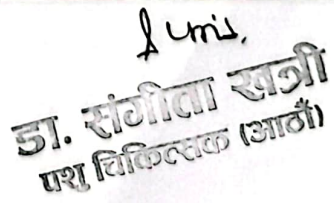 डा. संगीता खत्री
पशु चिकित्सक (आठौं)